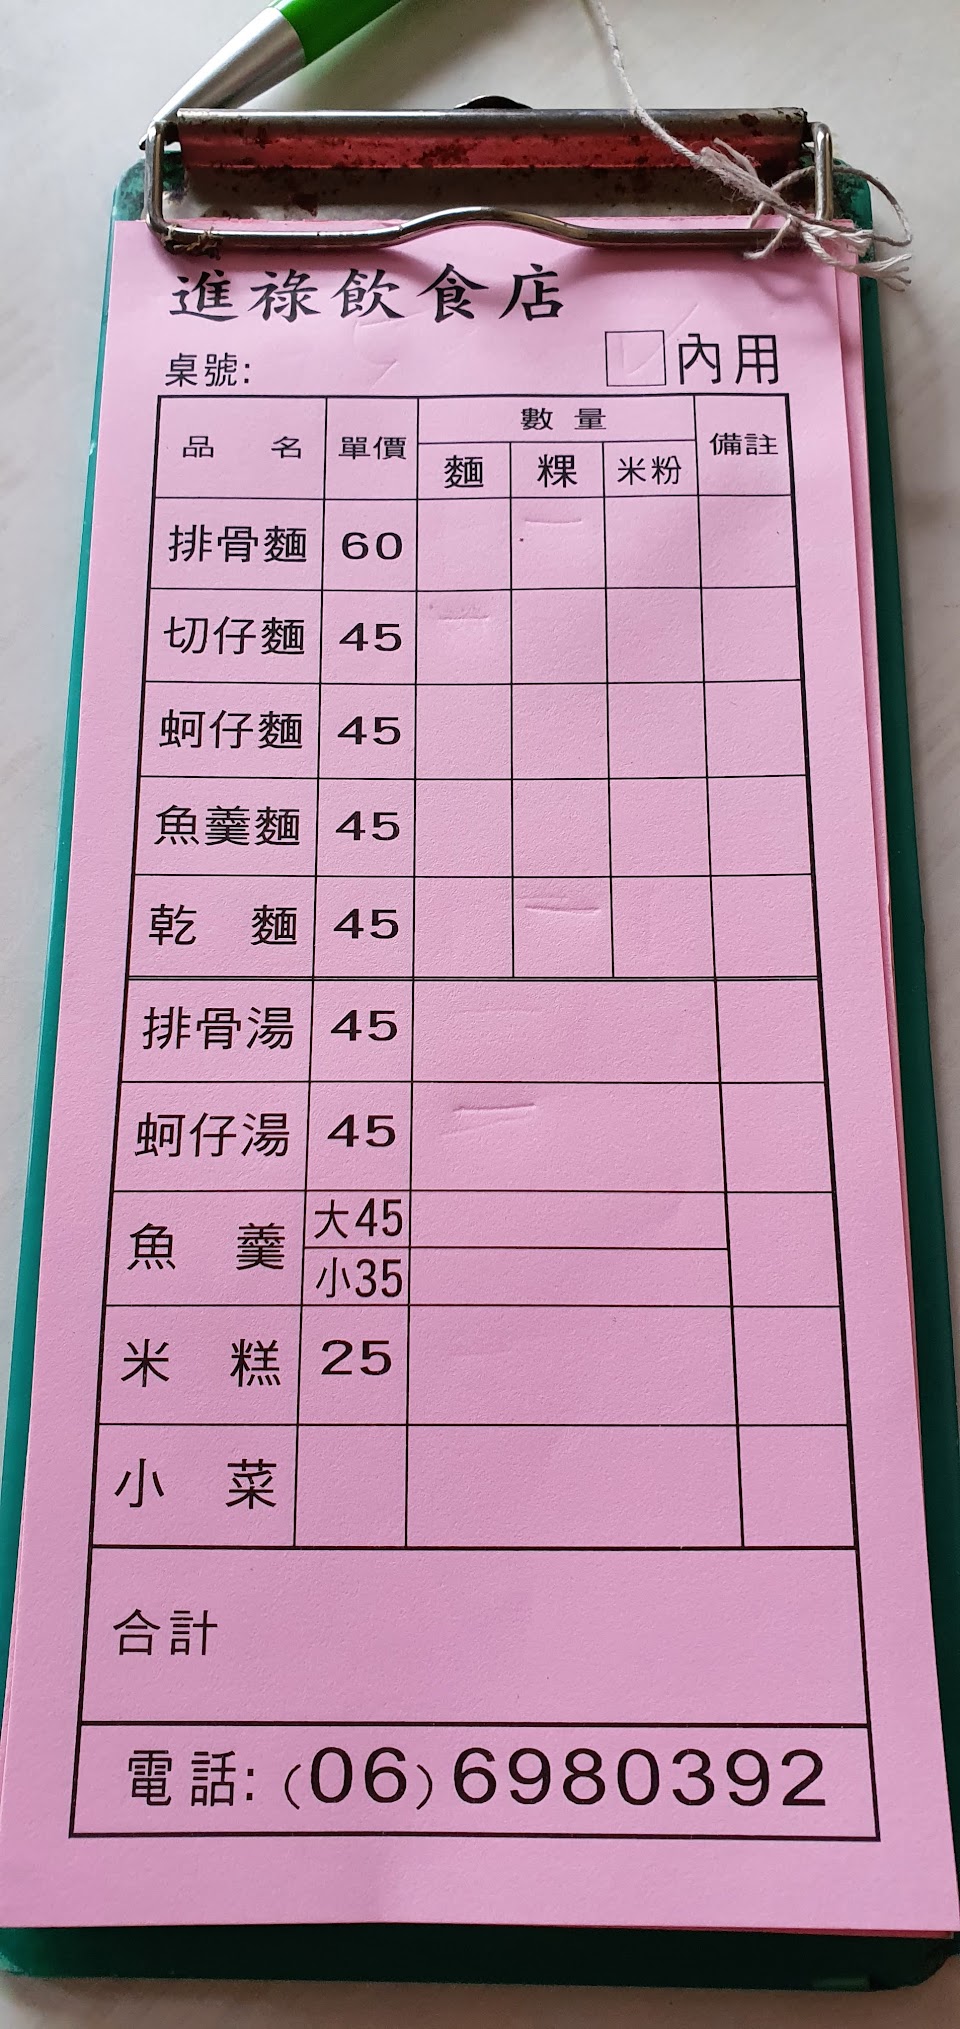 進祿飲食店
桌號: 內用
品 名 單價 數量 備註
麵 粿 米粉
排骨麵 60
切仔麵 45
蚵仔麵 45
魚羹麵 45
乾 麵 45
排骨湯 45
蚵仔湯 45
魚 羹 大45
小35
米 糕 25
小 菜
合計
電話:(06)6980392